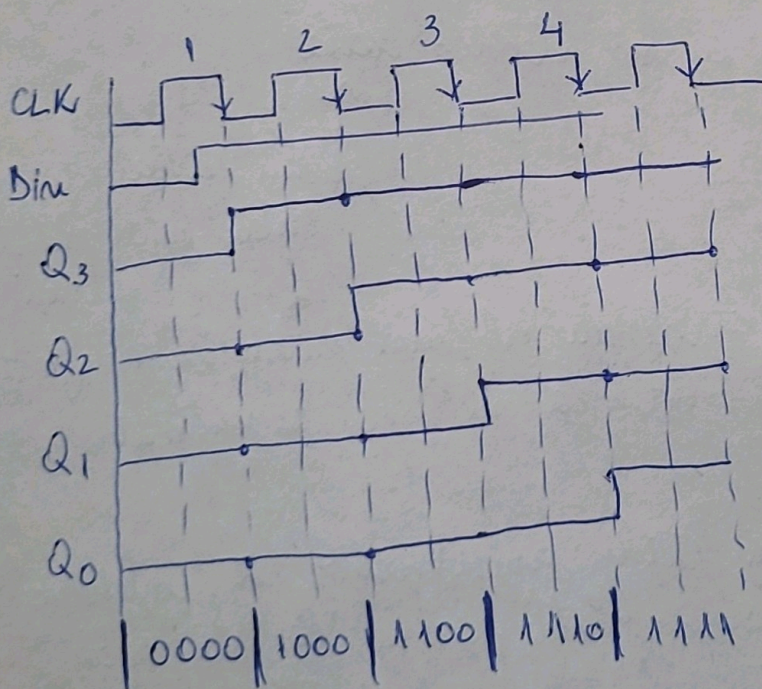 1 2 3 4
CLK
Din
Q3
Q2
Q1
Q0
| 0000 | 1000 | 1100 | 1110 | 1111